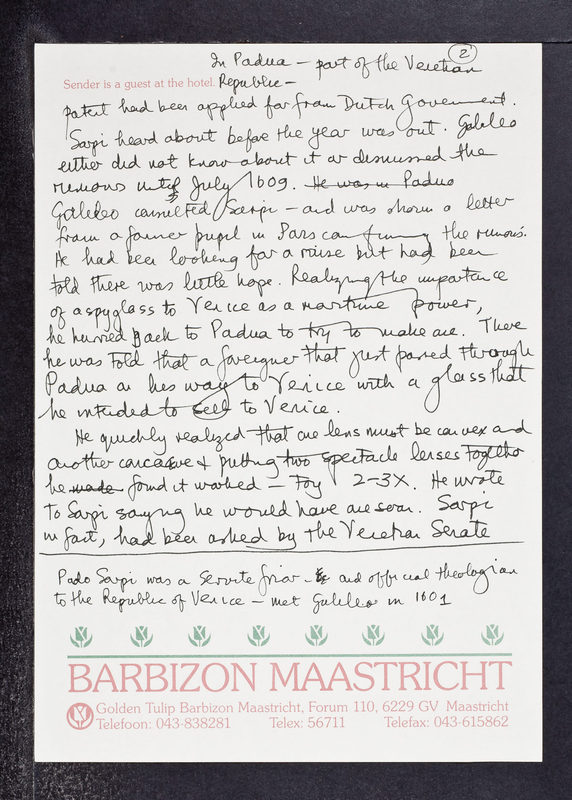 2
In Padua – part of the Venetian
Sender is a guest at the hotel. Republic –
patent had been applied for from Dutch Government.
Sarpi heard about before the year was out. Galileo
either did not know about it or dismissed the
rumours until July 1609. He was in Padua
Galileo consulted Sarpi – and was shown a letter
from a former pupil in Paris confirming the rumours.
He had been looking for a raise but had been
told there was little hope. Realizing the importance
of a spyglass to Venice as a maritime power,
he hurried back to Padua to try to make one. There
he was told that a foreigner that just passed through
Padua on his way to Venice with a glass that
he intended to sell to Venice.
He quickly realized that one lens must be convex and
another concave & putting two spectacle lenses together
he made found it worked – Toy 2–3X. He wrote
to Sarpi saying he would have one soon. Sarpi
in fact, had been asked by the Venetian Senate
Paolo Sarpi was a Servite friar – and official theologian
to the Republic of Venice – met Galileo in 1601
BARBIZON MAASTRICHT
Golden Tulip Barbizon Maastricht, Forum 110, 6229 GV Maastricht
Telefoon: 043-838281 Telex: 56711 Telefax: 043-615862